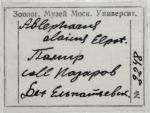 Зоолог. Музей Моск. Университ.
Ablepharus
alaicus Elpat.
Памир
coll Назаров
Det Елпатьевск
№ 2248